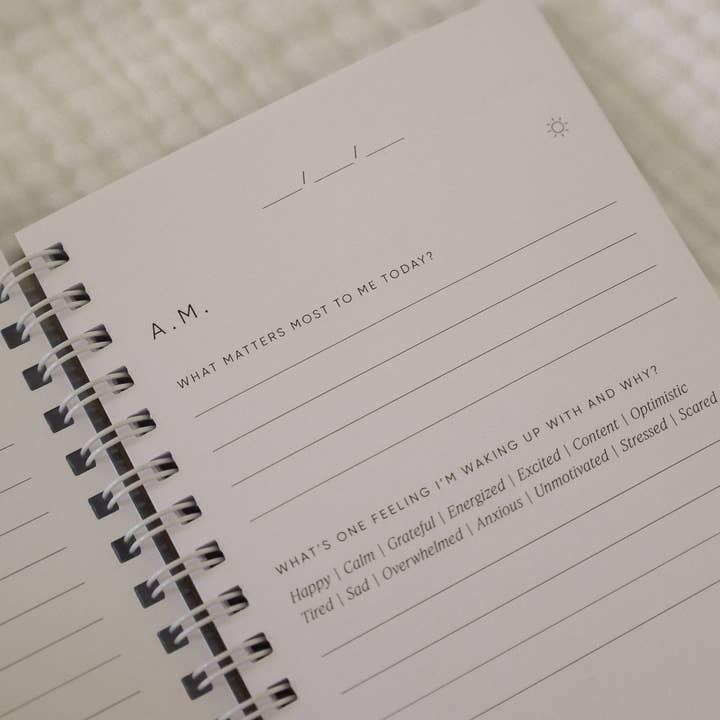 __/__/__
A.M.
WHAT MATTERS MOST TO ME TODAY?
WHAT'S ONE FEELING I'M WAKING UP WITH AND WHY?
Happy | Calm | Grateful | Energized | Excited | Content | Optimistic
Tired | Sad | Overwhelmed | Anxious | Unmotivated | Stressed | Scared